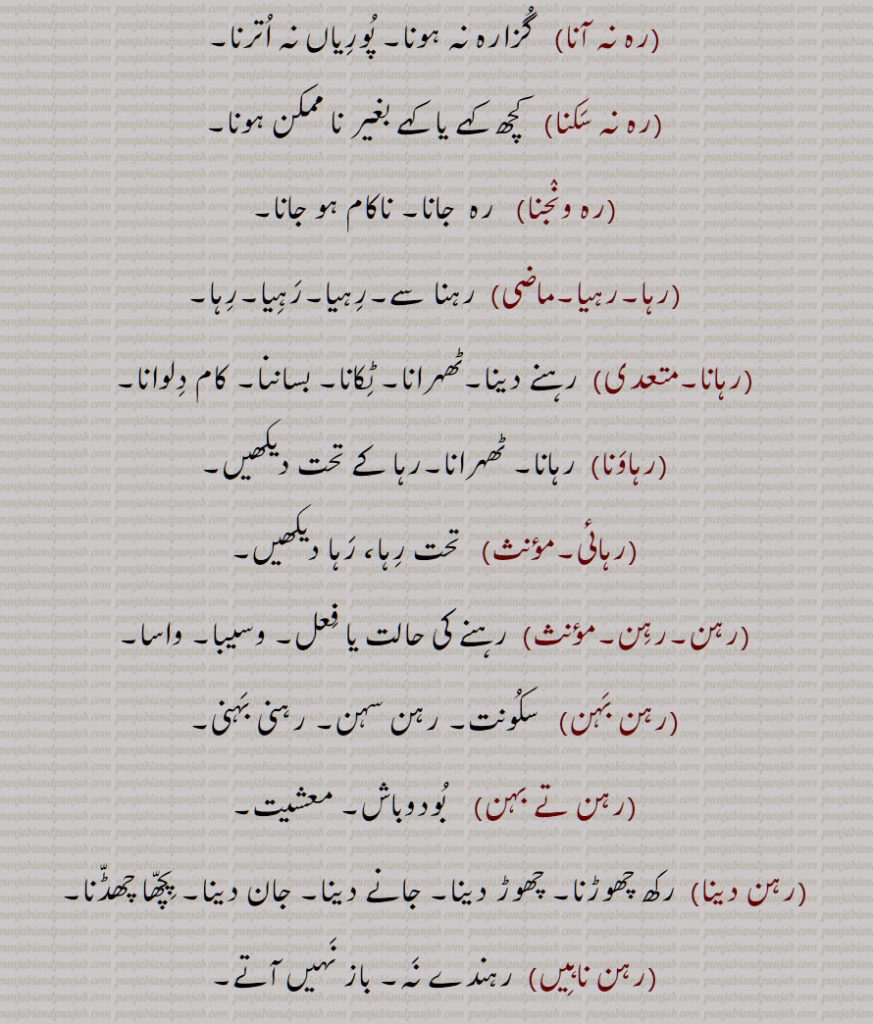 (رہ نہ آنا) گُزارہ نہ ہونا۔ پُورِیاں نہ اُترنا۔
(رہ نہ سَکنا) کچھ کہے یا کہے بغیر نا ممکن ہونا۔
(رہ ونْجنا) رہ جانا۔ ناکام ہو جانا۔
(رہا۔رہیا۔ماضی) رہنا سے۔رِہیا۔رَہِیا۔رِہا۔
(رہانا۔متعدی) رہنے دینا۔ٹھہرانا۔ٹِکانا۔ بساننا۔ کام دِلوانا۔
(رہاوَنا) رہانا۔ ٹھہرانا۔رہا کے تحت دیکھیں۔
(رہائی۔مؤنث) تحت رِہا، رَہا دیکھیں۔
(رہن۔رہِن۔مؤنث) رہنے کی حالت یا فِعل۔ وسیبا۔ واسا۔
(رہن بَہن) سکُونت۔ رہن سہن۔ رہنی بَہنی۔
(رہن تے بہن) بُودوباش۔ معشیت۔
(رہن دینا) رکھ چھوڑنا۔ چھوڑ دینا۔ جانے دینا۔ جان دینا۔ پِچھّا چھڈّنا۔
(رہن ناہِیں) رہندے نَہ۔ باز نَہیں آتے۔